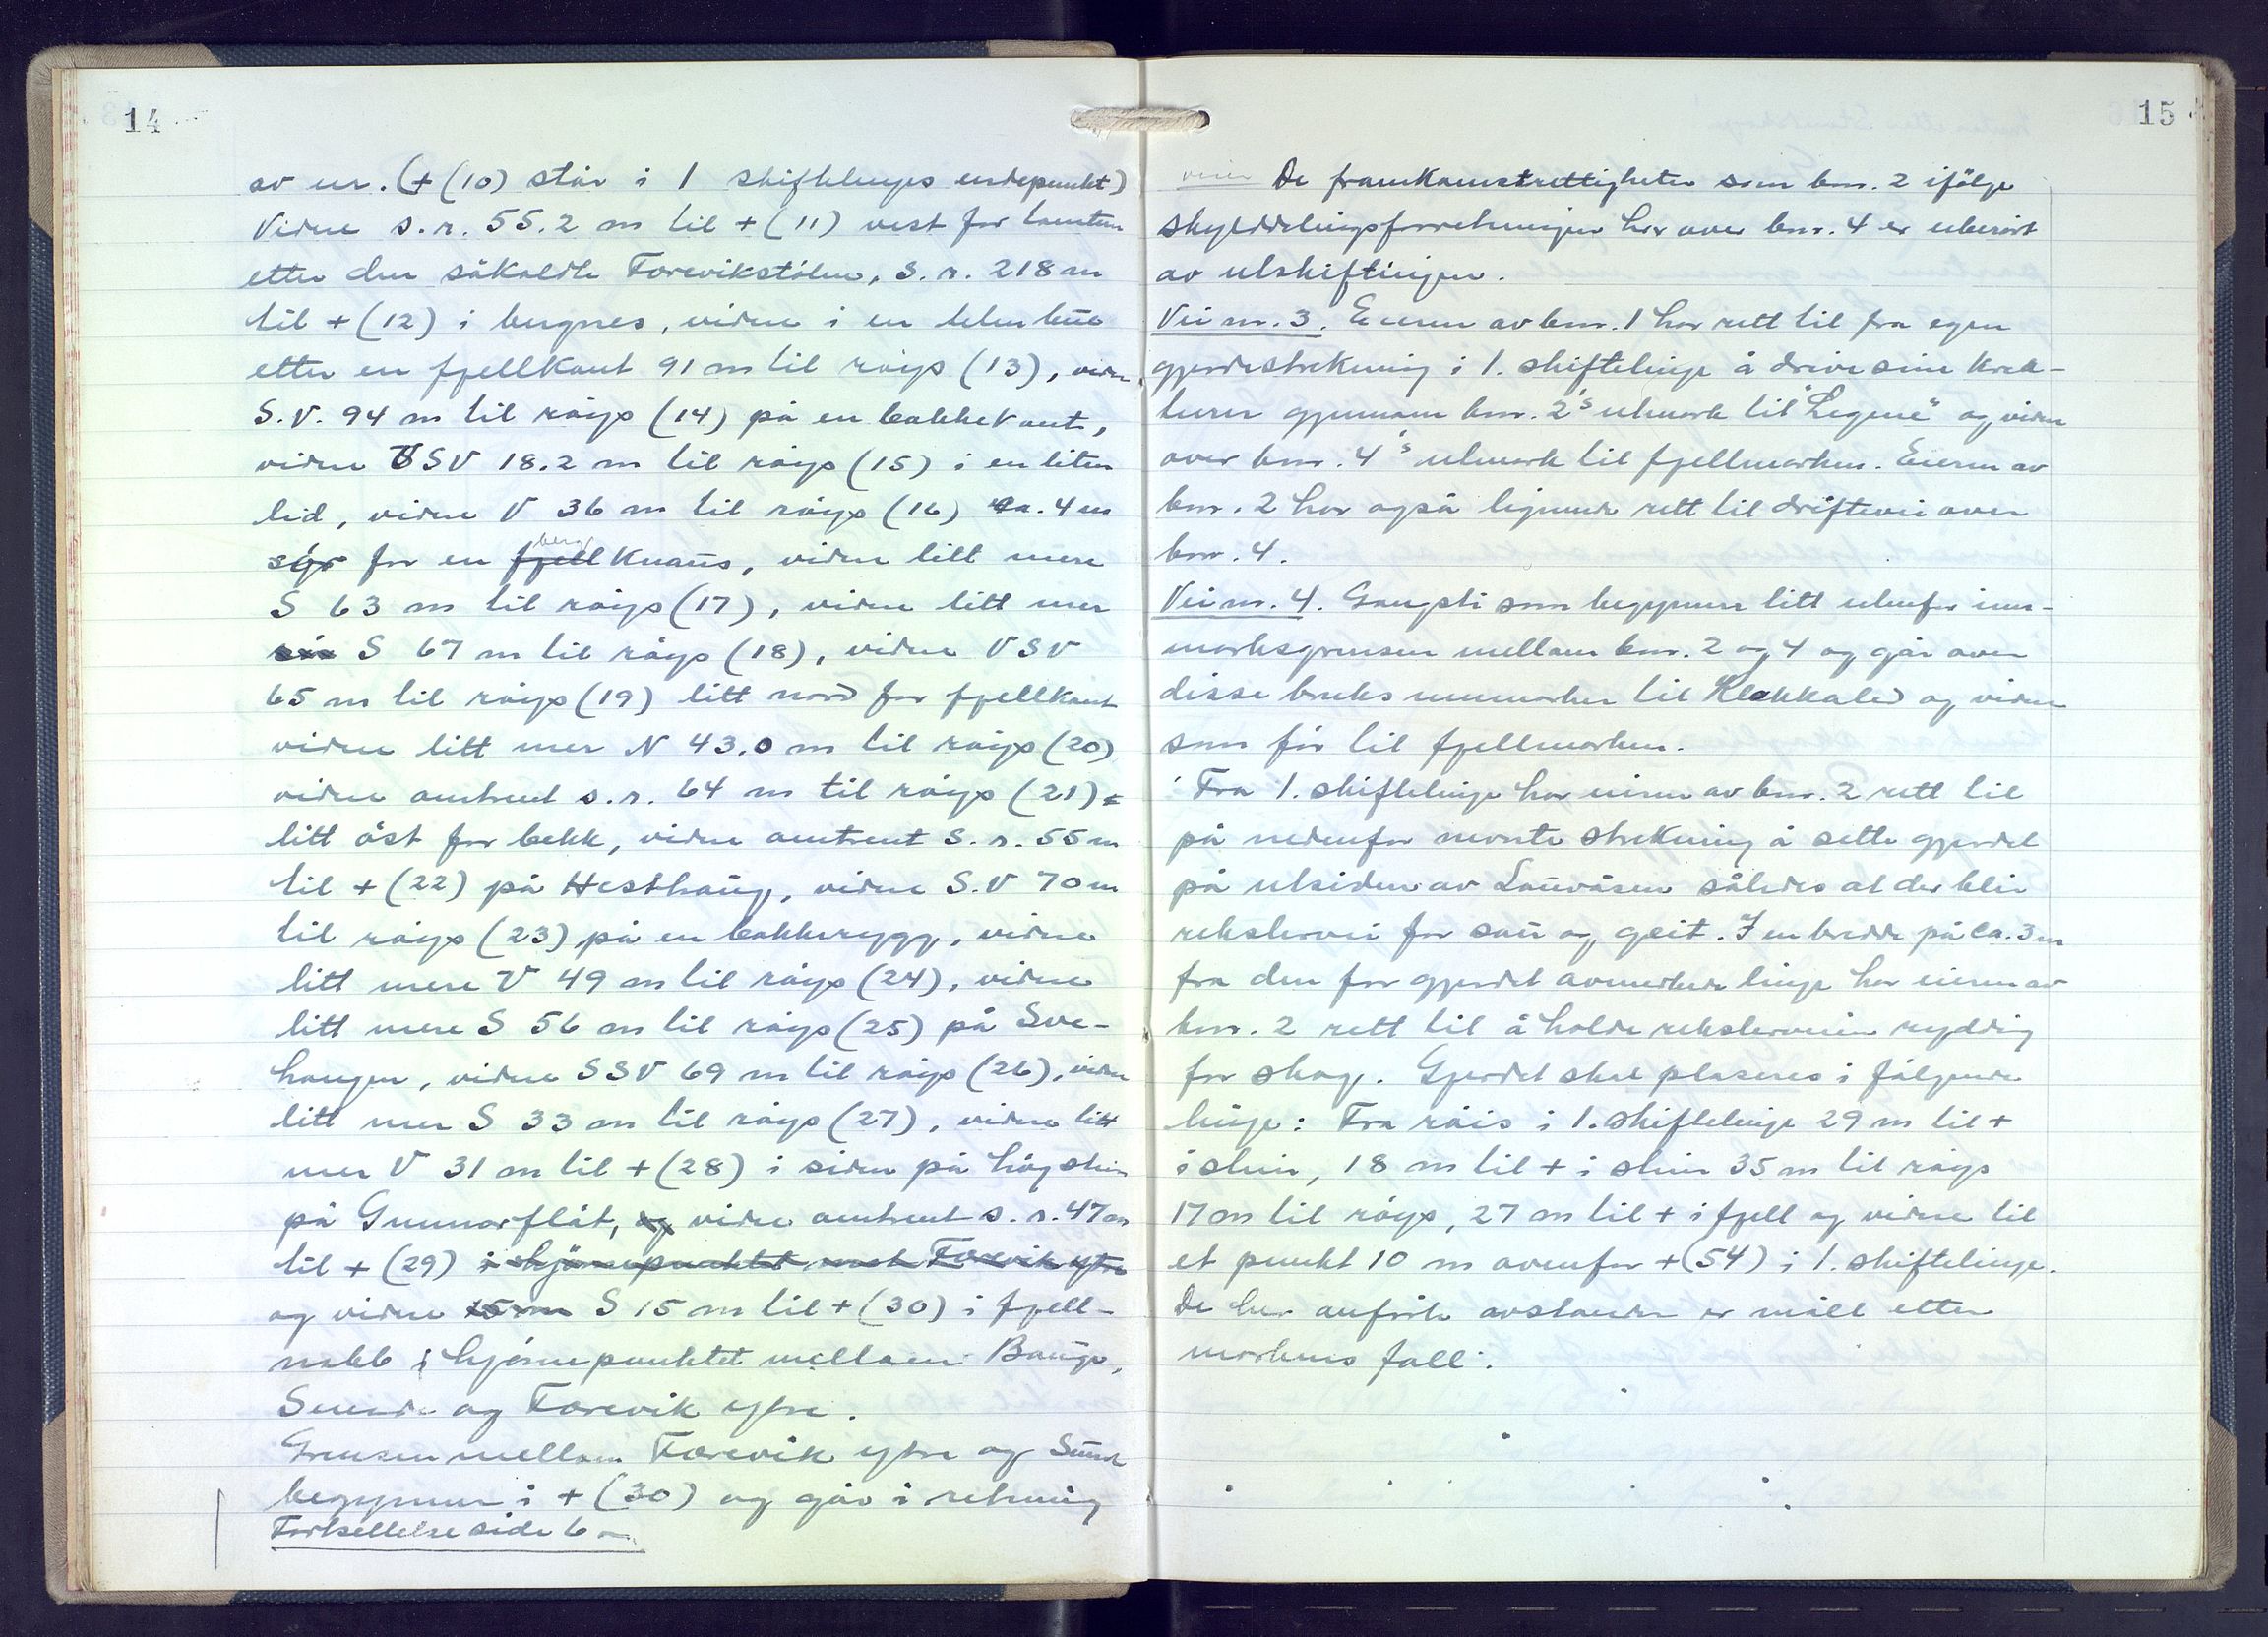 14
av ur. (+ (10) står i 1 skiftelinjes endepunkt)
Videre s.r. 55.2 m til + (11) vest for tomten
etter den såkaldte Forevikstölen, S. r. 218 m
til + (12) i bergnes, videre i en
etter en fjellkant 91 m til röys (13), videre
S.V. 94 m til röys (14) på en bakkekant,
videre VSV 18.2 m til röys (15) i en liten
lid, videre V 36 m til röys (16) ca. 4 m
sör for en fjell berg knaus, videre litt mere
S 63 m til röys (17), videre litt mer
S 67 m til röys (18), videre VSV
65 m til röys (19) litt nord for fjellkant
videre litt mer N 43.0 m til röys (20)
videre omtrent s.r. 64 m til röys (21)
litt öst for bekk, videre omtrent S. r. 55 m
til + (22) på Hesthaug, videre S.V 70 m
til röys (23) på en bakkerygg, videre
litt mere V 49 m til röys (24), videre
litt mere S 56 m til röys (25) på Sve-
haugen, videre SSV 69 m til röys (26), videre
litt mer S 33 m til röys (27), videre litt
mer V 31 m til + (28) i siden på hög stein
på Gunnarflåt, og videre omtrent s. r. 47 m
til + (29) i hjörnepunktet med Forevik ytre
og videre 15 m S 15 m til + (30) i fjell-
nabb i hjörnepunktet mellom Bauge,
Sunde og Forevik ytre.
Grensen mellom Forevik ytre og Sunde
begynner i + (30) og går i retning
Fortsettelse side 6
15
De framkomstrettigheter som bnr. 2 ifölge
skylddelingsforretningen har over bnr. 4 er uberört
av utskiftingen.
Vei nr. 3. Eieren av bnr. 1 har rett til fra egen
gjerdestrekning i 1. skiftelinje å drive sine krek-
turer gjennom bnr. 2's utmark til "Legene" og videre
over bnr. 4's utmark til fjellmarken. Eieren av
bnr. 2 har også lignende rett til driftevei over
bnr. 4.
Vei nr. 4. Gangsti som begynner litt utenfor inn-
marksgrensen mellom bnr. 2 og 4 og går over
disse bruks innmarker til Klakkaled og videre
som för til fjellmarken.
Fra 1. skiftelinje har eieren av bnr. 2 rett til
på nedenfor nevnte strekning å sette gjerdet
på utsiden av Lauvåsen således at der blir
rekstervei for sau og geit. I en bredde på ca. 3 m
fra den for gjerdet avmerkede linje har eieren av
bnr. 2 rett til å holde reksterveien ryddig
for skog. Gjerdet skal plaseres i fölgende
linje: Fra röis i 1. skiftelinje 29 m til +
i stein, 18 m til + i stein 35 m til röys
17 m til röys, 27 m til + i fjell og videre til
et punkt 10 m ovenfor + (54) i 1. skiftelinje.
De her anförte avstander er målt etter
markens fall.